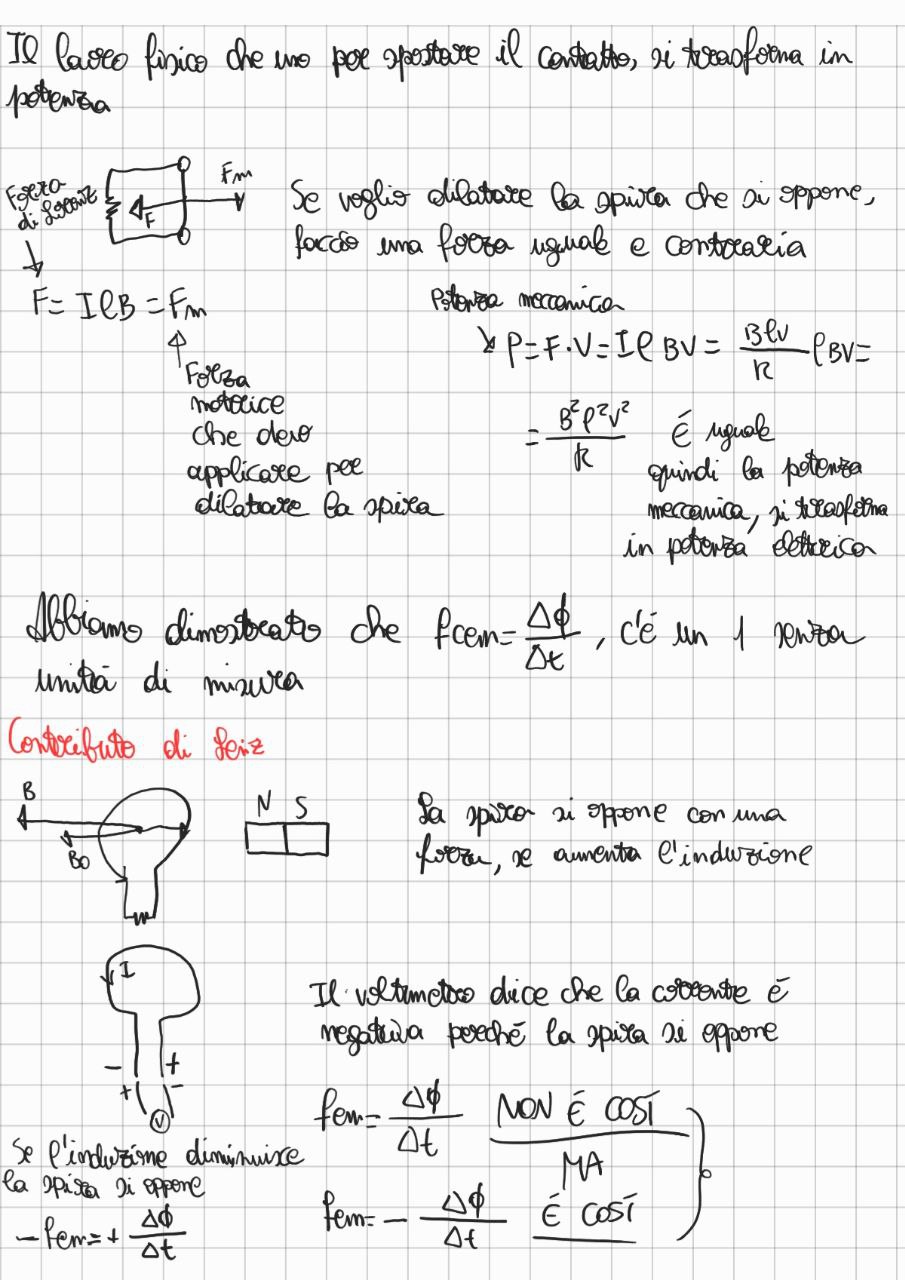 Il lavoro fisico che uso per spostare il contatto, si trasforma in
potenza
Forza
di Lorentz
Fm
F
Se voglio dilatare la spira che si oppone,
faccio una forza uguale e contraria
F = IlB = Fm
Forza
motrice
che devo
applicare per
dilatare la spira
Potenza meccanica
P = F·V = Il BV = Blv/R lBV =
= B²l²V²/R
É uguale
quindi la potenza
meccanica, si trasforma
in potenza elettrica
Abbiamo dimostrato che fcem = Δϕ/Δt, c'é un 1 senza
unità di misura
Contributo di lenz
B
B0
N S
La spira si oppone con una
forza, se aumenta l'induzione
I
- +
+ -
V
Il voltmetro dice che la corrente é
negativa perché la spira si oppone
fem = Δϕ/Δt NON É COSÍ
MA
fem = - Δϕ/Δt É COSÍ
Se l'induzione diminuisce
la spira si oppone
- fem = + Δϕ/Δt